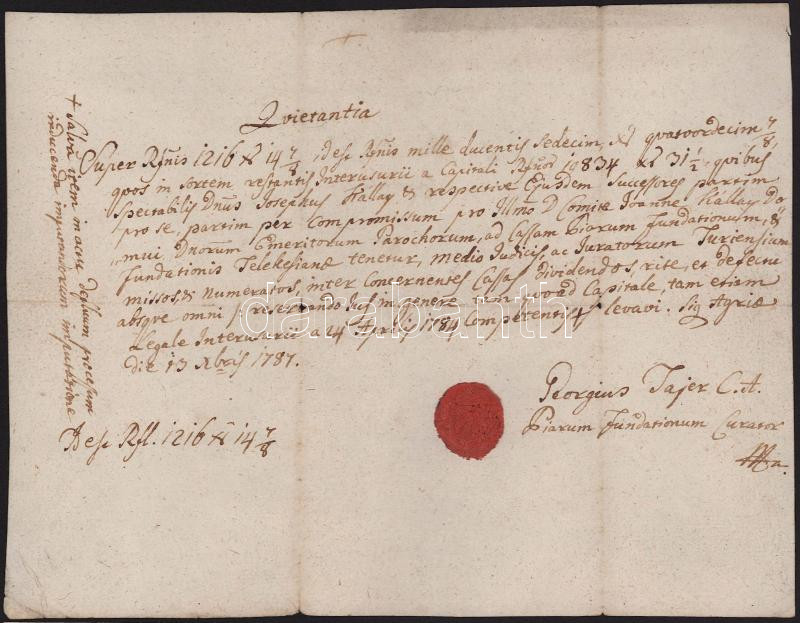 Qvietantia
Super Rfnis 1216 X 14 7/8, id est Rfnis mille ducentis sedecim, Xr quatuordecim 7/8,
qvos in sortem restantis Interusurii a Capitali Rfnor 10834 Xr 31 1/2, qvibus
Spectabilis Dnus Josephus Kállay & respective Ejusdem Successores partim
pro se, partim per Compromissum pro Illmo D Comite Joanne Kállay Do-
mui Dnorum Emeritorum Parochorum, ad Cassam Piarum Fundationum, &
Fundationis Telekesianae tenetur, medio Judicis, ac Juratorum Turiensium
missos, & Numeratos, inter Concernentes Cassas Dividendos, rite, et defectu
absqve omni praeservando Jus in genere tam qvoad Capitale, tam etiam
Legale Interusurii a 24 Aprilis 1784 Competentis levavi. Sig Agriae
die 13 Xbris 1787.
Georgius Tajer C. A.
Piarum Fundationum Curator
mpa.
Id est Rfl. 1216 X 14 7/8
+ Salva item in acu desuum processum
reducenda impensorum imputatione
darabanth